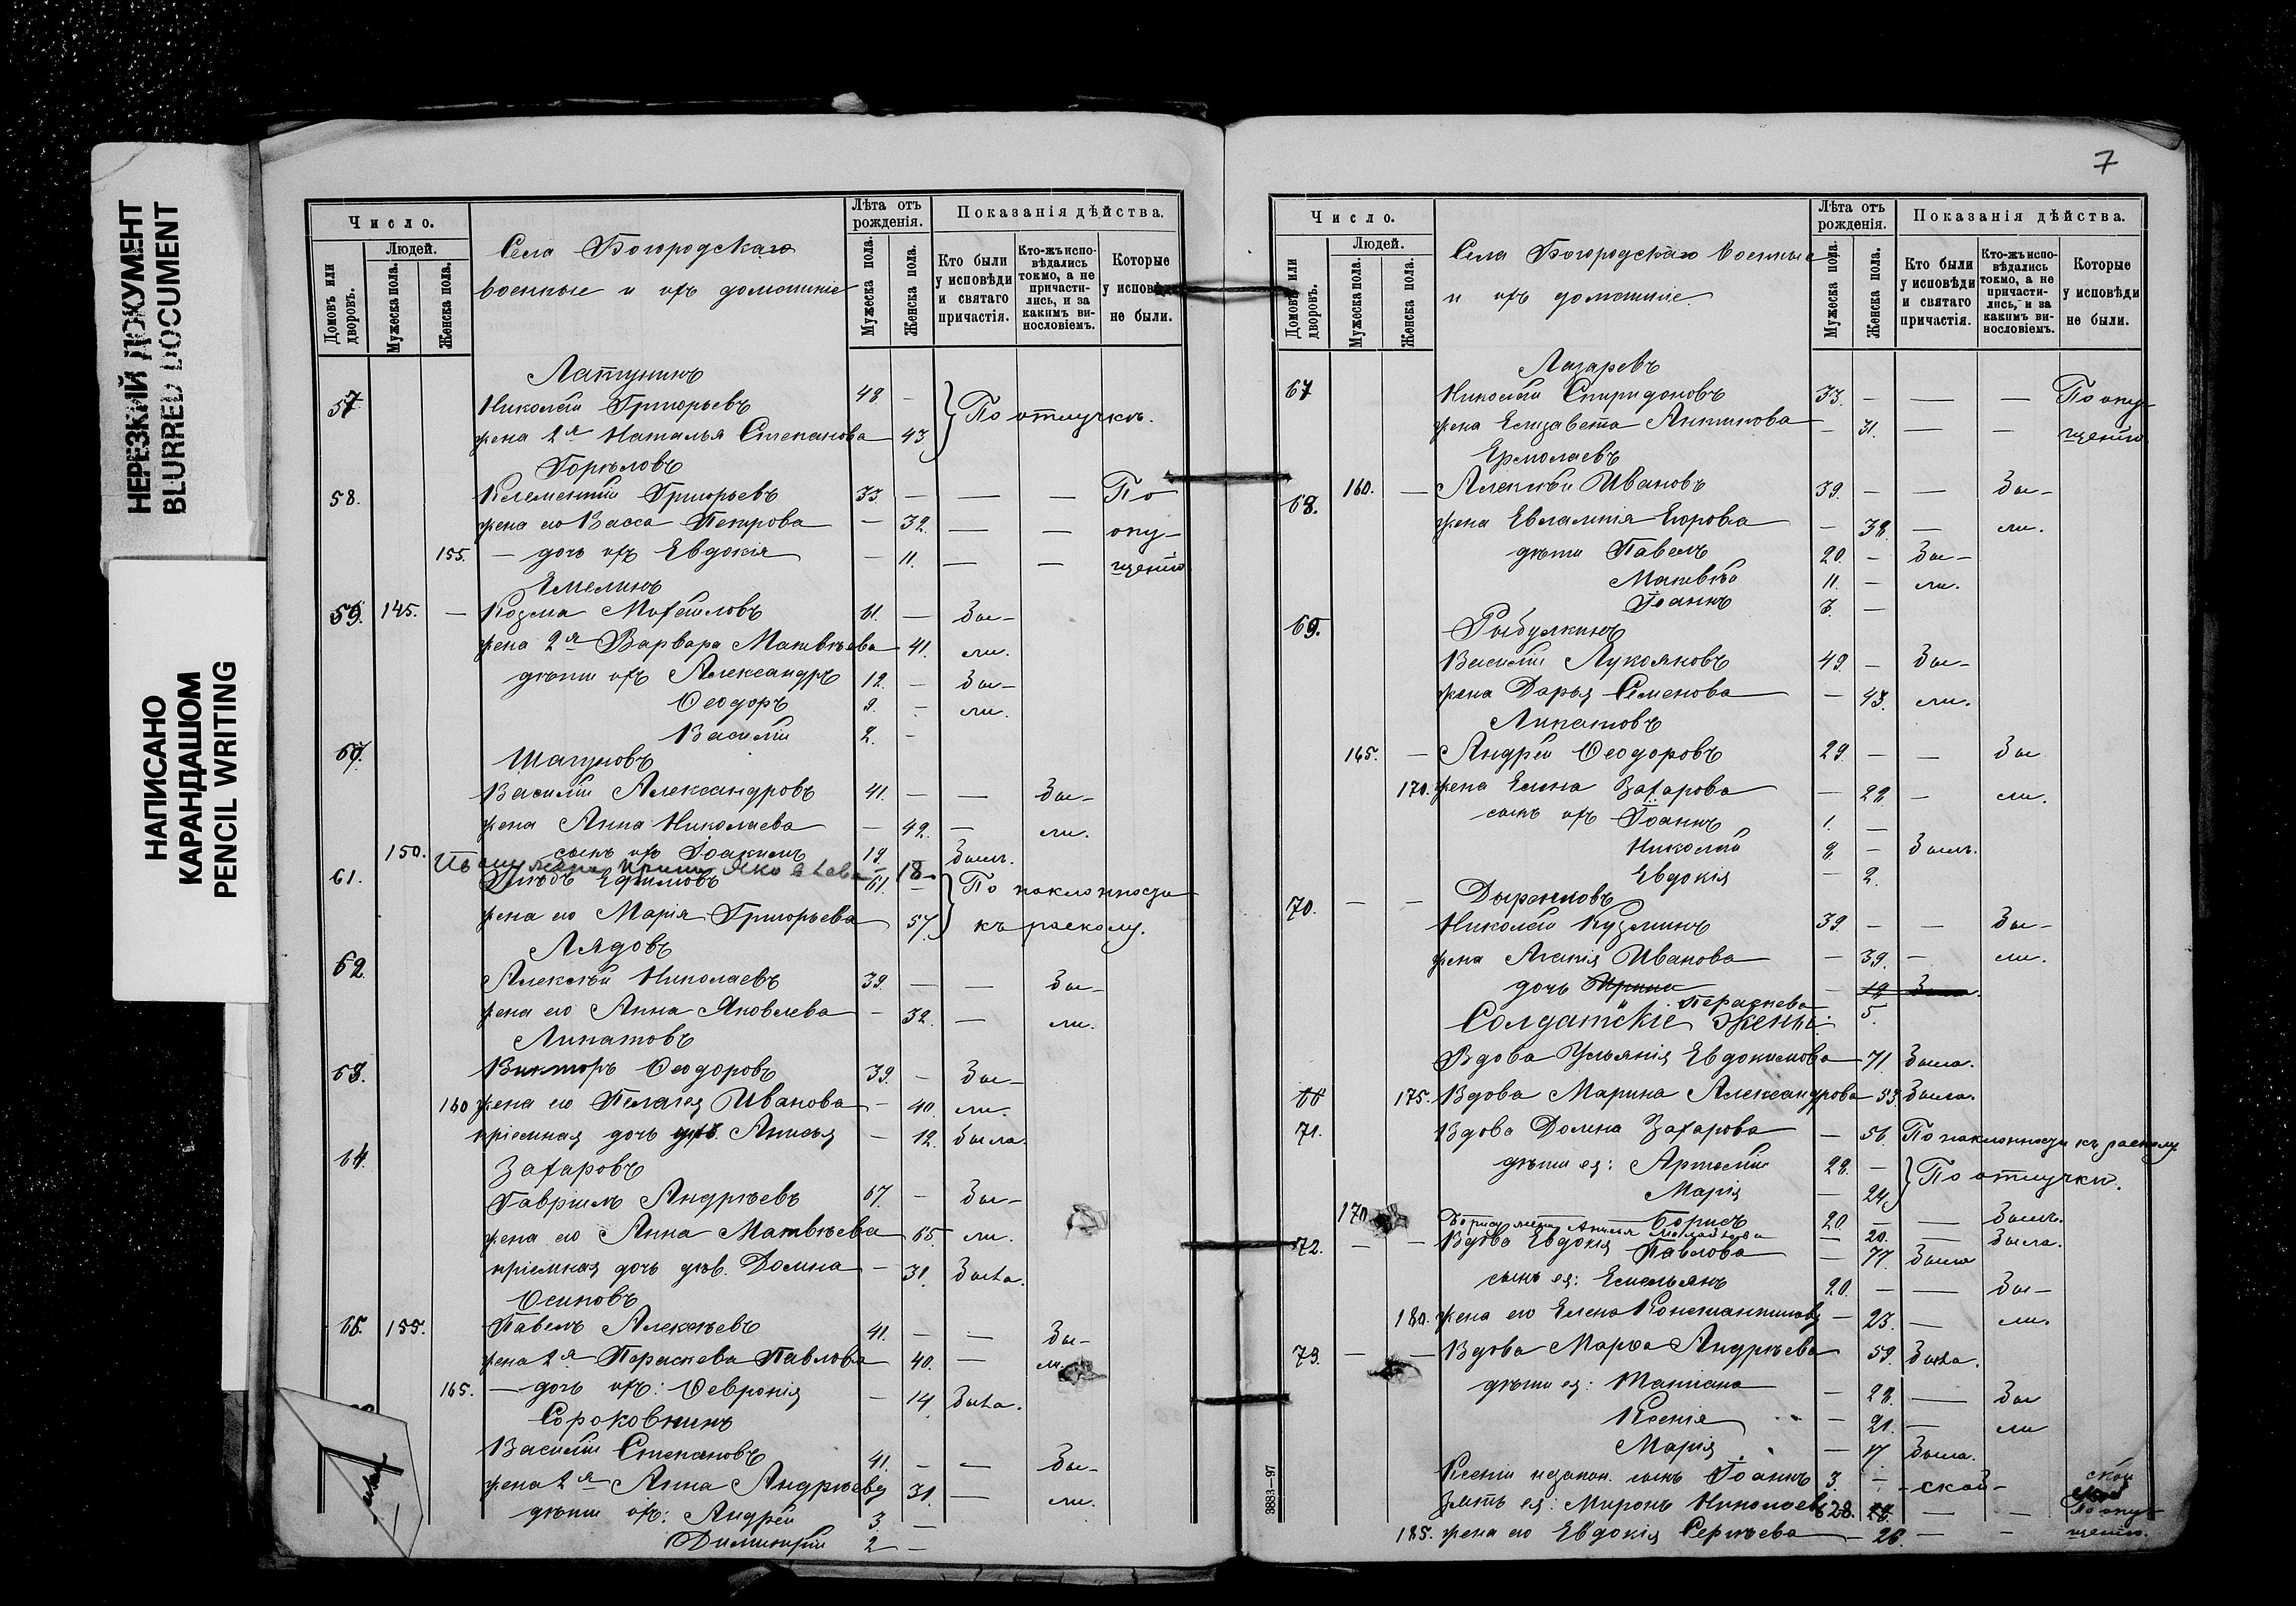 НЕРЕЗКИЙ ДОКУМЕНТ
BLURRED DOCUMENT
НАПИСАНО
КАРАНДАШОМ
PENCIL WRITING
Число. Лѣта отъ рожденія. Показанія дѣйства.
Домовъ или дворовъ. Людей. Мужеска пола. Женска пола.
Села Богородскаго
военные и ихъ домашніе
Мужеска пола. Женска пола. Кто были у исповѣди и святаго причастія. Кто-жъ исповѣдались токмо, а не причастились, и за какимъ винословіемъ. Которые у исповѣди не были.
Латунинъ
57 Николай Григорьевъ 48 — По отлучкѣ.
жена 2я Наталья Степанова 43
Горѣловъ
58. Клементій Григорьевъ 33 — — — По
жена его Васса Петрова — 32. — — опу-
155. — дочь ихъ Евдокія — 11. — — щенію
Емелинъ
59. 145. — Козма Михайловъ 61. — Бы-
жена 2я Варвара Матвѣева 41. ли.
дѣти ихъ Александръ 12. — Бы-
Ѳеодоръ 9. — ли.
Василій 2. —
60. Шагуновъ
Василій Александровъ 41. — — Бы-
жена Анна Николаева — 42. — ли.
150. сынъ ихъ Іоакимъ 19. — Былъ.
жена Ирина Яковлева 18
61. Глѣбъ Ефимовъ 61. — По наклонности
жена его Марія Григорьева 57. къ расколу.
Лядовъ
62. Алексѣй Николаевъ 39. — — Бы-
жена его Анна Яковлева — 32. — ли.
Липатовъ
63. Викторъ Ѳеодоровъ 39. — Бы-
160 жена его Пелагея Иванова — 40. ли.
пріемная дочь Анисья — 12. Была.
64. Захаровъ
Гавріилъ Андрѣевъ 67. — Бы-
жена его Анна Матвѣева 65. ли.
пріемная дочь дѣв. Домна — 31. Была.
Осиповъ
65. 155. Павелъ Алексѣевъ 41. — — Бы-
жена 2я Параскева Павлова 40. — ли.
165. — дочь ихъ: Ѳевронія — 14. Была.
Сороковнинъ
Василій Степановъ 41. — — Бы-
жена 2я Анна Андрѣева 31. — ли.
дѣти ихъ: Андрей 3. —
Димитрій 2 —
7
Число. Лѣта отъ рожденія. Показанія дѣйства.
Домовъ или дворовъ. Людей. Мужеска пола. Женска пола.
Села Богородскаго военные
и ихъ домашніе.
Мужеска пола. Женска пола. Кто были у исповѣди и святаго причастія. Кто-жъ исповѣдались токмо, а не причастились, и за какимъ винословіемъ. Которые у исповѣди не были.
Лазаревъ
67 Николай Спиридоновъ 33. — — — По опу-
жена Елизавета Антипова — 31. — — щенію
Ермолаевъ
68. 160. — Алексѣй Ивановъ 39. — — Бы-
жена Евлампія Егорова — 38. — ли.
дѣти Павелъ 20. — Бы-
Матвѣй 11. — ли.
Іоаннъ —
69. Рыбулкинъ
Василій Лукояновъ 49. — Бы-
жена Дарья Семенова — 43. ли.
Липатовъ
165. — Андрей Ѳеодоровъ 29. — — Бы
170. жена Елена Захарова — 28. — ли.
сынъ ихъ Іоаннъ 1. —
Николай 8. — Былъ.
Евдокія — 2.
70. — — Дыраковъ
Николай Кузминъ 39. — — Бы-
жена Агапія Иванова — 39. — ли.
дочь Ирина — 19.
Параскева 5.
Солдатскіе жены:
Вдова Ульянія Евдокимова 71. Была.
175. Вдова Марина Александрова 53. Была.
71. Вдова Домна Захарова — 56. По наклонности къ расколу.
дѣти ея: Артемій 28. — По отлучкѣ.
Марія — 24.
170 Борисъ 20. — — Былъ.
Бориса жена Анисія 20. — Была.
72. — — Вдова Евдокія Павлова — 77. Была
сынъ ея: Емельянъ 20. — — Бы-
180. жена его Елена Константинова — 23. — ли.
73. — — Вдова Марѳа Андрѣева 59. Была.
дѣти ея: Татіана — 28. — Бы
Ксенія — 21. — ли
Марія — 17 Была.
Ксеніи незакон. сынъ Іоаннъ 3. —
Зять ея: Миронъ Николаевъ 28. — — По опу-
185. жена его Евдокія Сергѣева — 26. — — щенію.
3883—97